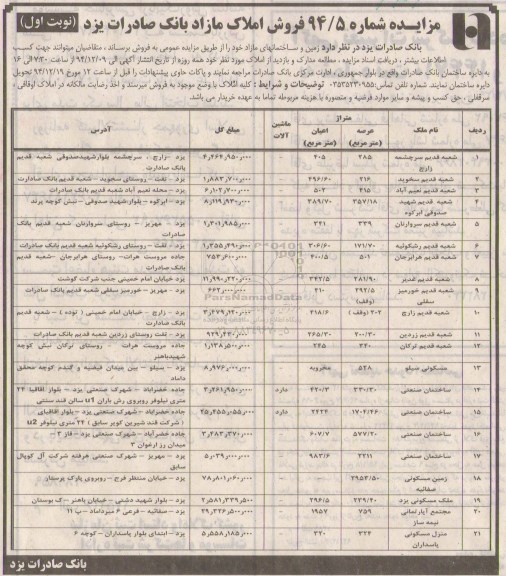 مزایده شماره ۹۴/۵ فروش املاک مازاد بانک صادرات یزد (نوبت اول)
بانک صادرات یزد در نظر دارد زمین و ساختمانهای مازاد خود را از طریق مزایده عمومی به فروش برساند ، متقاضیان میتوانند جهت کسب
اطلاعات بیشتر ، دریافت اسناد مزایده ، مطالعه مدارک و بازدید از املاک مورد نظر خود همه روزه از تاریخ انتشار آگهی الی ۹۴/۱۲/۰۹ از ساعت ۷/۳۰ الی ۱۶
به دایره ساختمان بانک صادرات واقع در بلوار جمهوری ، اداره مرکزی بانک صادرات مراجعه نمایند و پاکات حاوی پیشنهادات را قبل از ساعت ۱۲ مورخ ۹۴/۱۲/۱۹ تحویل
دایره ساختمان نمایند. شماره تلفن تماس: ۰۳۵۳۵۲۳۰۹۵۵ توضیحات و شرایط : کلیه املاک با وضع موجود به فروش میرسد و اخذ رضایت مالکانه در املاک اوقافی ،
سرقفلی ، حق کسب و پیشه و سایر موارد فرضیه و متصوره با هزینه مربوطه تماما به عهده خریدار می باشد.
ردیف نام ملک متراژ عرصه (متر مربع) اعیان (متر مربع) ماشین آلات مبلغ کل آدرس
۱ شعبه قدیم سرچشمه زارچ ۲۸۵ ۴۰۵ - ۴,۲۶۴,۹۵۰,۰۰۰ یزد -زارچ ، سرچشمه بلوارشهیدصدوقی شعبه قدیم بانک صادرات
۲ شعبه قدیم سخوید ۲۱۶ ۲۹۶/۶۰ - ۱,۸۸۳,۷۰۰,۰۰۰ یزد - تفت - روستای سخوید - شعبه قدیم بانک صادرات
۳ شعبه قدیم نعیم آباد ۴۱۵ ۵۰۳ - ۶,۱۰۲,۷۰۰,۰۰۰ یزد - محله نعیم آباد شعبه قدیم بانک صادرات
۴ شعبه قدیم شهید صدوقی ابرکوه ۳۵۷/۱۸ ۳۸۹/۷۰ - ۸,۱۱۹,۹۳۰,۰۰۰ یزد - ابرکوه - بلوار شهید صدوقی - نبش کوچه پرند
۵ شعبه قدیم سروازنان ۳۳۹ ۳۲۱ - ۱,۳۰۱,۹۸۵,۰۰۰ یزد - مهریز - روستای سروازنان شعبه قدیم بانک صادرات
۶ شعبه قدیم رشکوئیه ۱۷۱/۷۰ ۳۰۶/۶۰ - ۱,۳۵۵,۴۹۰,۰۰۰ یزد - تفت - روستای رشکوئیه شعبه قدیم بانک صادرات
۷ شعبه قدیم هرابرجان ۵۰۱ ۴۰۰/۵ - ۷۵۳,۶۰۰,۰۰۰ جاده مروست هرات- روستای هرابرجان -شعبه قدیم بانک صادرات
۸ شعبه قدیم غدیر ۲۸۱/۹۰ ۳۴۲/۵ - ۱۱,۹۹۰,۲۲۰,۰۰۰ یزد خیابان امام خمینی جنب شرکت گوشت
۹ شعبه قدیم خورمیز سفلی ۳۹۲/۵ (وقف) ۲۱۰ - ۶۶۲,۰۰۰,۰۰۰ یزد - مهریز - خورمیز سفلی شعبه قدیم بانک صادرات
۱۰ شعبه قدیم زارچ ۲۰۲ (وقف ) ۳۱۸/۶ - ۳,۴۷۹,۱۲۰,۰۰۰ یزد - زارچ - خیابان امام خمینی ( توده ) - شعبه قدیم بانک صادرات
۱۱ شعبه قدیم زردین ۲۰۰/۳۰ ۲۶۵/۳۰ - ۹۲۹,۴۳۰,۰۰۰ یزد - تفت روستای زردین شعبه قدیم بانک صادرات
۱۲ شعبه قدیم ترکان ۳۴۰ ۲۴۵ - ۱,۱۳۸,۵۰۰,۰۰۰ جاده مروست هرات - روستای ترکان نبش کوچه شهیدباهنر
۱۳ مسکونی سیلو ۵۲۸ مخروبه - ۸,۹۷۶,۰۰۰,۰۰۰ یزد - سیلو - بین میدان فیضیه و گندم کوچه محقق داماد
۱۴ ساختمان صنعتی ۳۳۰/۳۰ ۳۲۰/۳ دارد ۳,۲۶۱,۹۵۰,۰۰۰ جاده خضرآباد - شهرک صنعتی یزد - بلوار اقاقیا ۲۴ متری نیلوفر روبروی رش باران u1 سالن قند سنتی
۱۵ ساختمان صنعتی ۱۷۰۴/۴۶ ۲۲۲۴ دارد ۲۵,۲۵۵,۰۵۵,۰۰۰ جاده خضرآباد - شهرک صنعتی یزد - بلوار اقاقیای ( شرکت قند شیرین کویر سابق ) ۲۴ متری نیلوفر u2
۱۶ ساختمان صنعتی ۵۷۷/۲۰ ۶۰۷/۷ - ۳,۴۸۳,۳۷۰,۰۰۰ جاده خضرآباد - شهرک صنعتی یزد - فاز ۳ - میدان رز ارغوان ۳
۱۷ ساختمان صنعتی ۲۲۱۱ ۹۸۳/۶ - ۵,۰۳۹,۰۰۰,۰۰۰ یزد - مهریز - شهرک صنعتی هرفته شرکت آل کوپال سابق
۱۸ زمین مسکونی صفائیه ۲۹۵۳/۵۰ - - ۷۸,۸۰۱,۰۶۰,۰۰۰ یزد - خیابان منتظر فرج - روبروی پارک پرستار
۱۹ ملک مسکونی یزد ۲۳۹/۴۰ ۲۹۶/۵ - ۲,۵۸۱,۳۳۹,۵۰۰ یزد - بلوار شهید دشتی - خیابان باهنر -ک بوستان
۲۰ مجتمع آپارتمانی نیمه ساز ۷۵۹ ۱۹۵۷ - ۲۹,۳۲۶,۵۰۰,۰۰۰ یزد - صفائیه - فرعی ۶ میرداماد - پ ۱۱
۲۱ منزل مسکونی پاسداران ۳۲۴ ۳۲۰ - ۵,۵۵۸,۱۸۵,۰۰۰ یزد - ابتدای بلوار پاسداران - کوچه ۶
بانک صادرات یزد
ParsNamadData